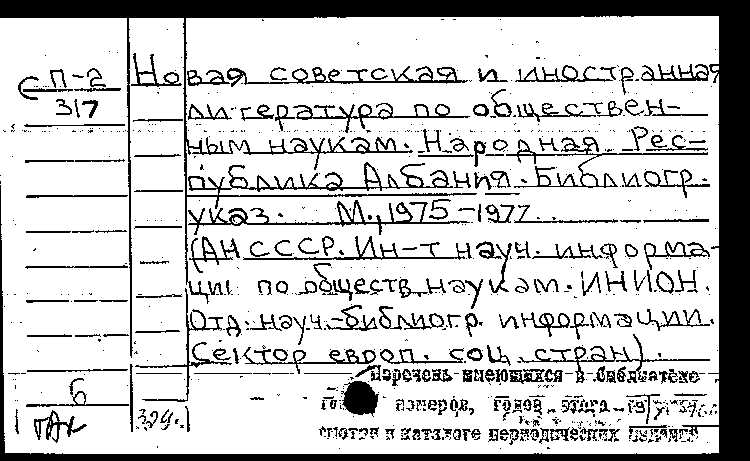 П-2
3/7
Новая советская и иностранная
литература по обществен-
ным наукам. Народная Рес-
публика Албания. Библиогр.
указ. М., 1975-1977.
(АН СССР. Ин-т науч. информа-
ции по обществ. наукам. ИНИОН.
Отд. науч.-библиогр. информации.
Сектор европ. соц. стран).
Перечень имеющихся в библиотеке
номеров, годов
смотри в каталоге периодических изданий
Б
329.